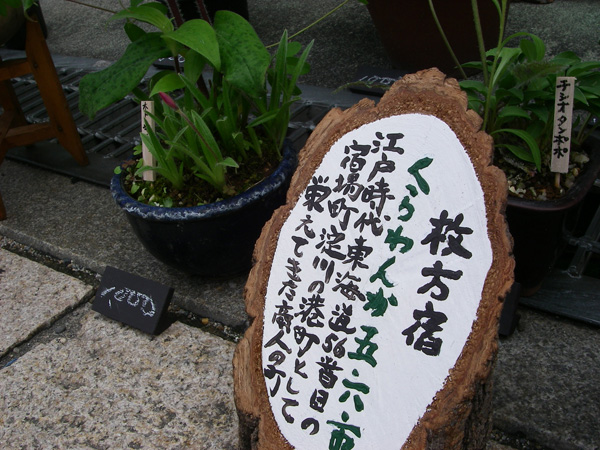 枚方宿
くらわんか五六市
江戸時代東海道56番目の
宿場町淀川の港町として
栄えてきた商人の町
チシオタンポポ